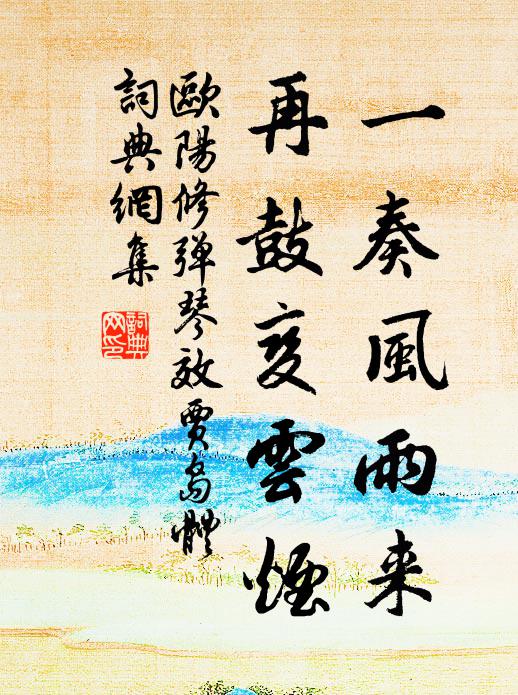 一奏風雨来
再鼓変雲煙
歐陽修弹琴效贾島體
詞典網集
詞典網印